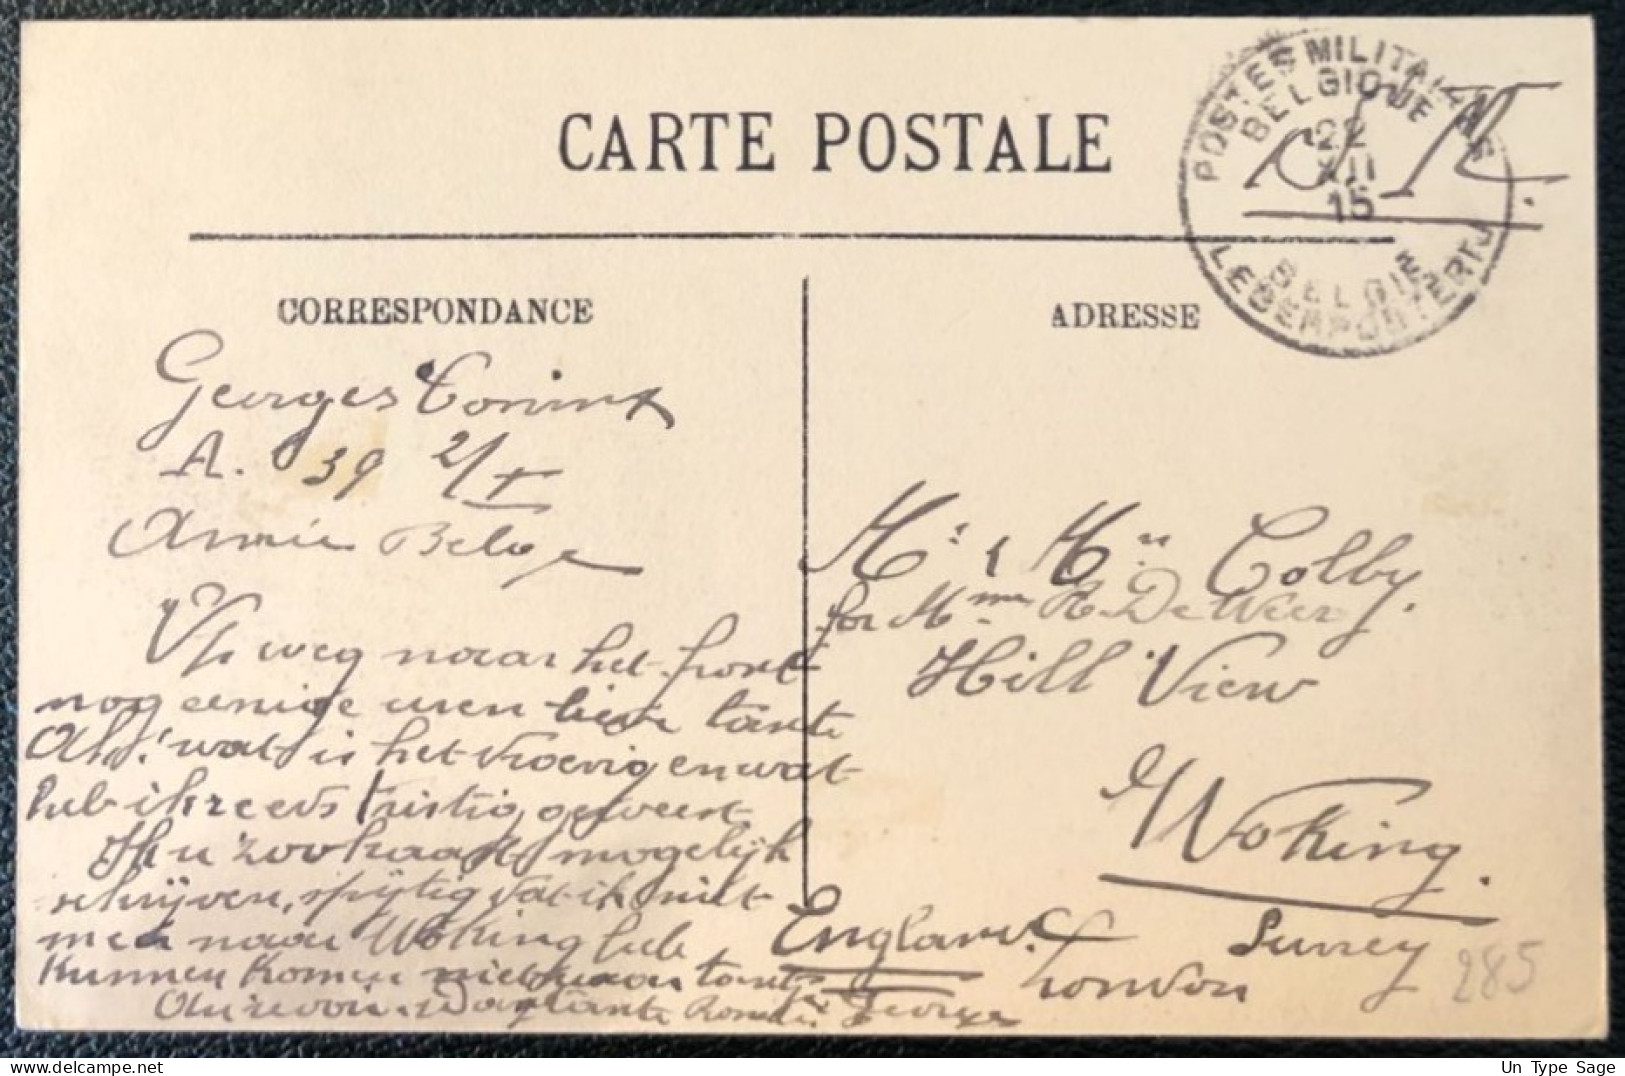 CARTE POSTALE
POSTES MILITAIRES
BELGIQUE
22
XII
15
BELGIE
LEGERPOSTERIJ
S. M.
CORRESPONDANCE
ADRESSE
Georges
A. 39 2/I
Armée Belge
Op weg naar het front
nog eenige uren lieve tante
Ah! wat is het droevig en wat
heb ik reeds tristig geweest
Ik u zoo haast mogelijk
schrijven, spijtig dat ik niet
meer naar Woking heb
kunnen komen niet waar tante
Au revoir Georges
Mr & Mrs Colby
for Mme R. De Weer
Hill View
Woking.
Surrey
England
London
285
Un Type Sage